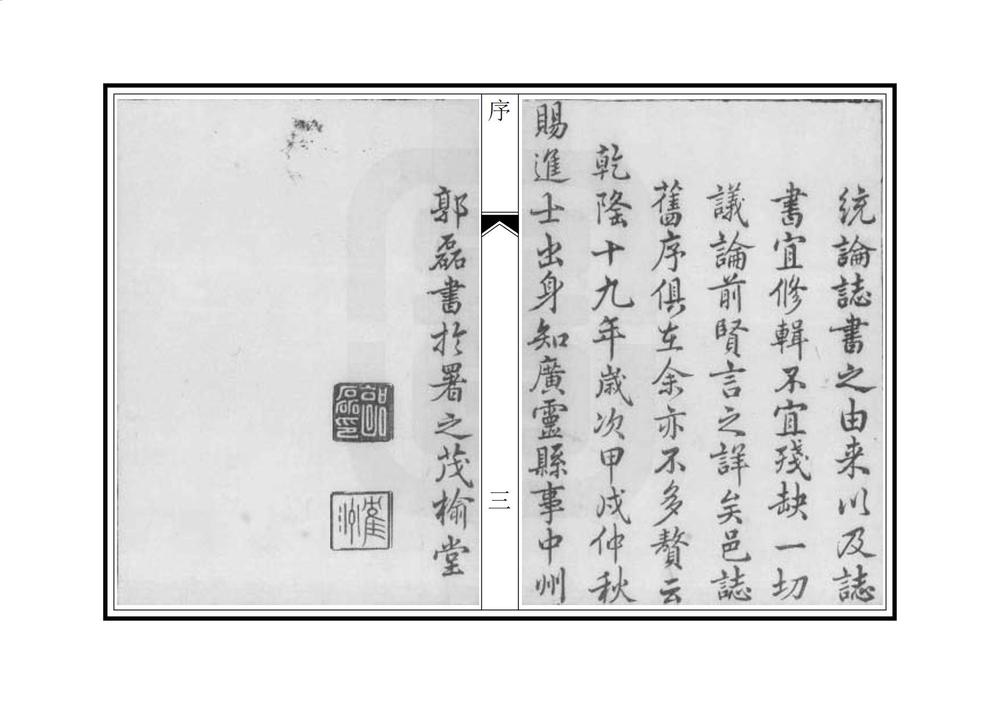 統論誌書之由来以及誌
書宜修輯不宜殘缺一切
議論前賢言之詳矣邑誌
舊序俱在余亦不多贅云
乾隆十九年歲次甲戌仲秋
賜進士出身知廣靈縣事中州
序
三
郭磊書於署之茂榆堂